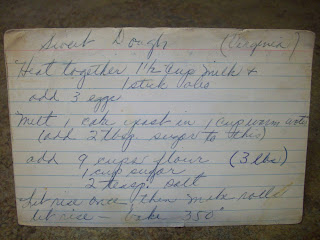 Sweet Dough (Virginia)
Heat together 1 1/2 cup milk +
1 stick oleo
add 3 eggs
Melt 1 cake yeast in 1 cup warm water
(add 2 tbsp. sugar to this)
add 9 cups flour (3 lbs)
1 cup sugar
2 teasp. salt
Let rise once, then make rolls
let rise - bake 350°